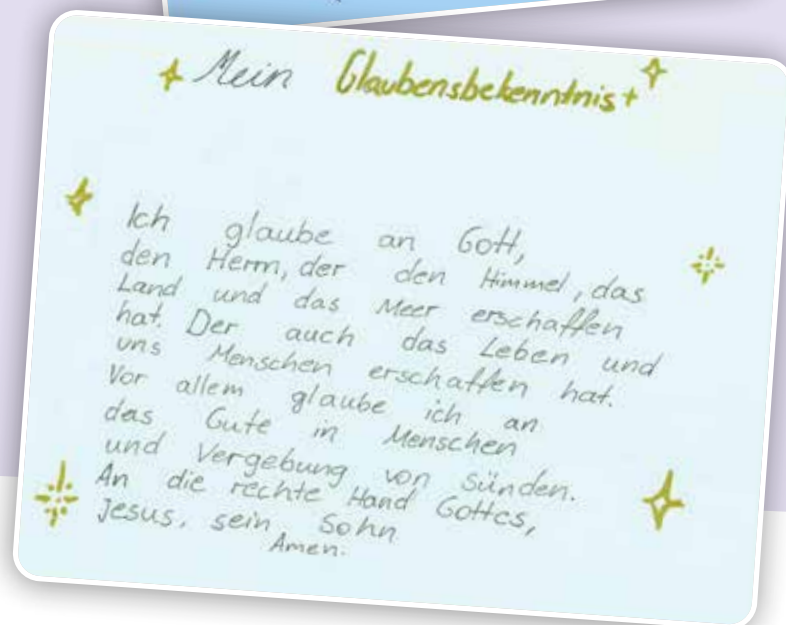 Mein Glaubensbekenntnis
Ich glaube an Gott,
den Herrn, der den Himmel, das
Land und das Meer erschaffen
hat. Der auch das Leben und
uns Menschen erschaffen hat.
Vor allem glaube ich an
das Gute in Menschen
und Vergebung von Sünden.
An die rechte Hand Gottes,
Jesus, sein Sohn
Amen.